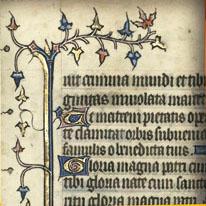 uit crimina mundi et tibi
guitas inviolata manet
e matrem pietatis ope
te clamitat orbis subueni
famulis o benedicta tuis
Gloria magna patri
tibi gloria nate cum sancto
gloria magna